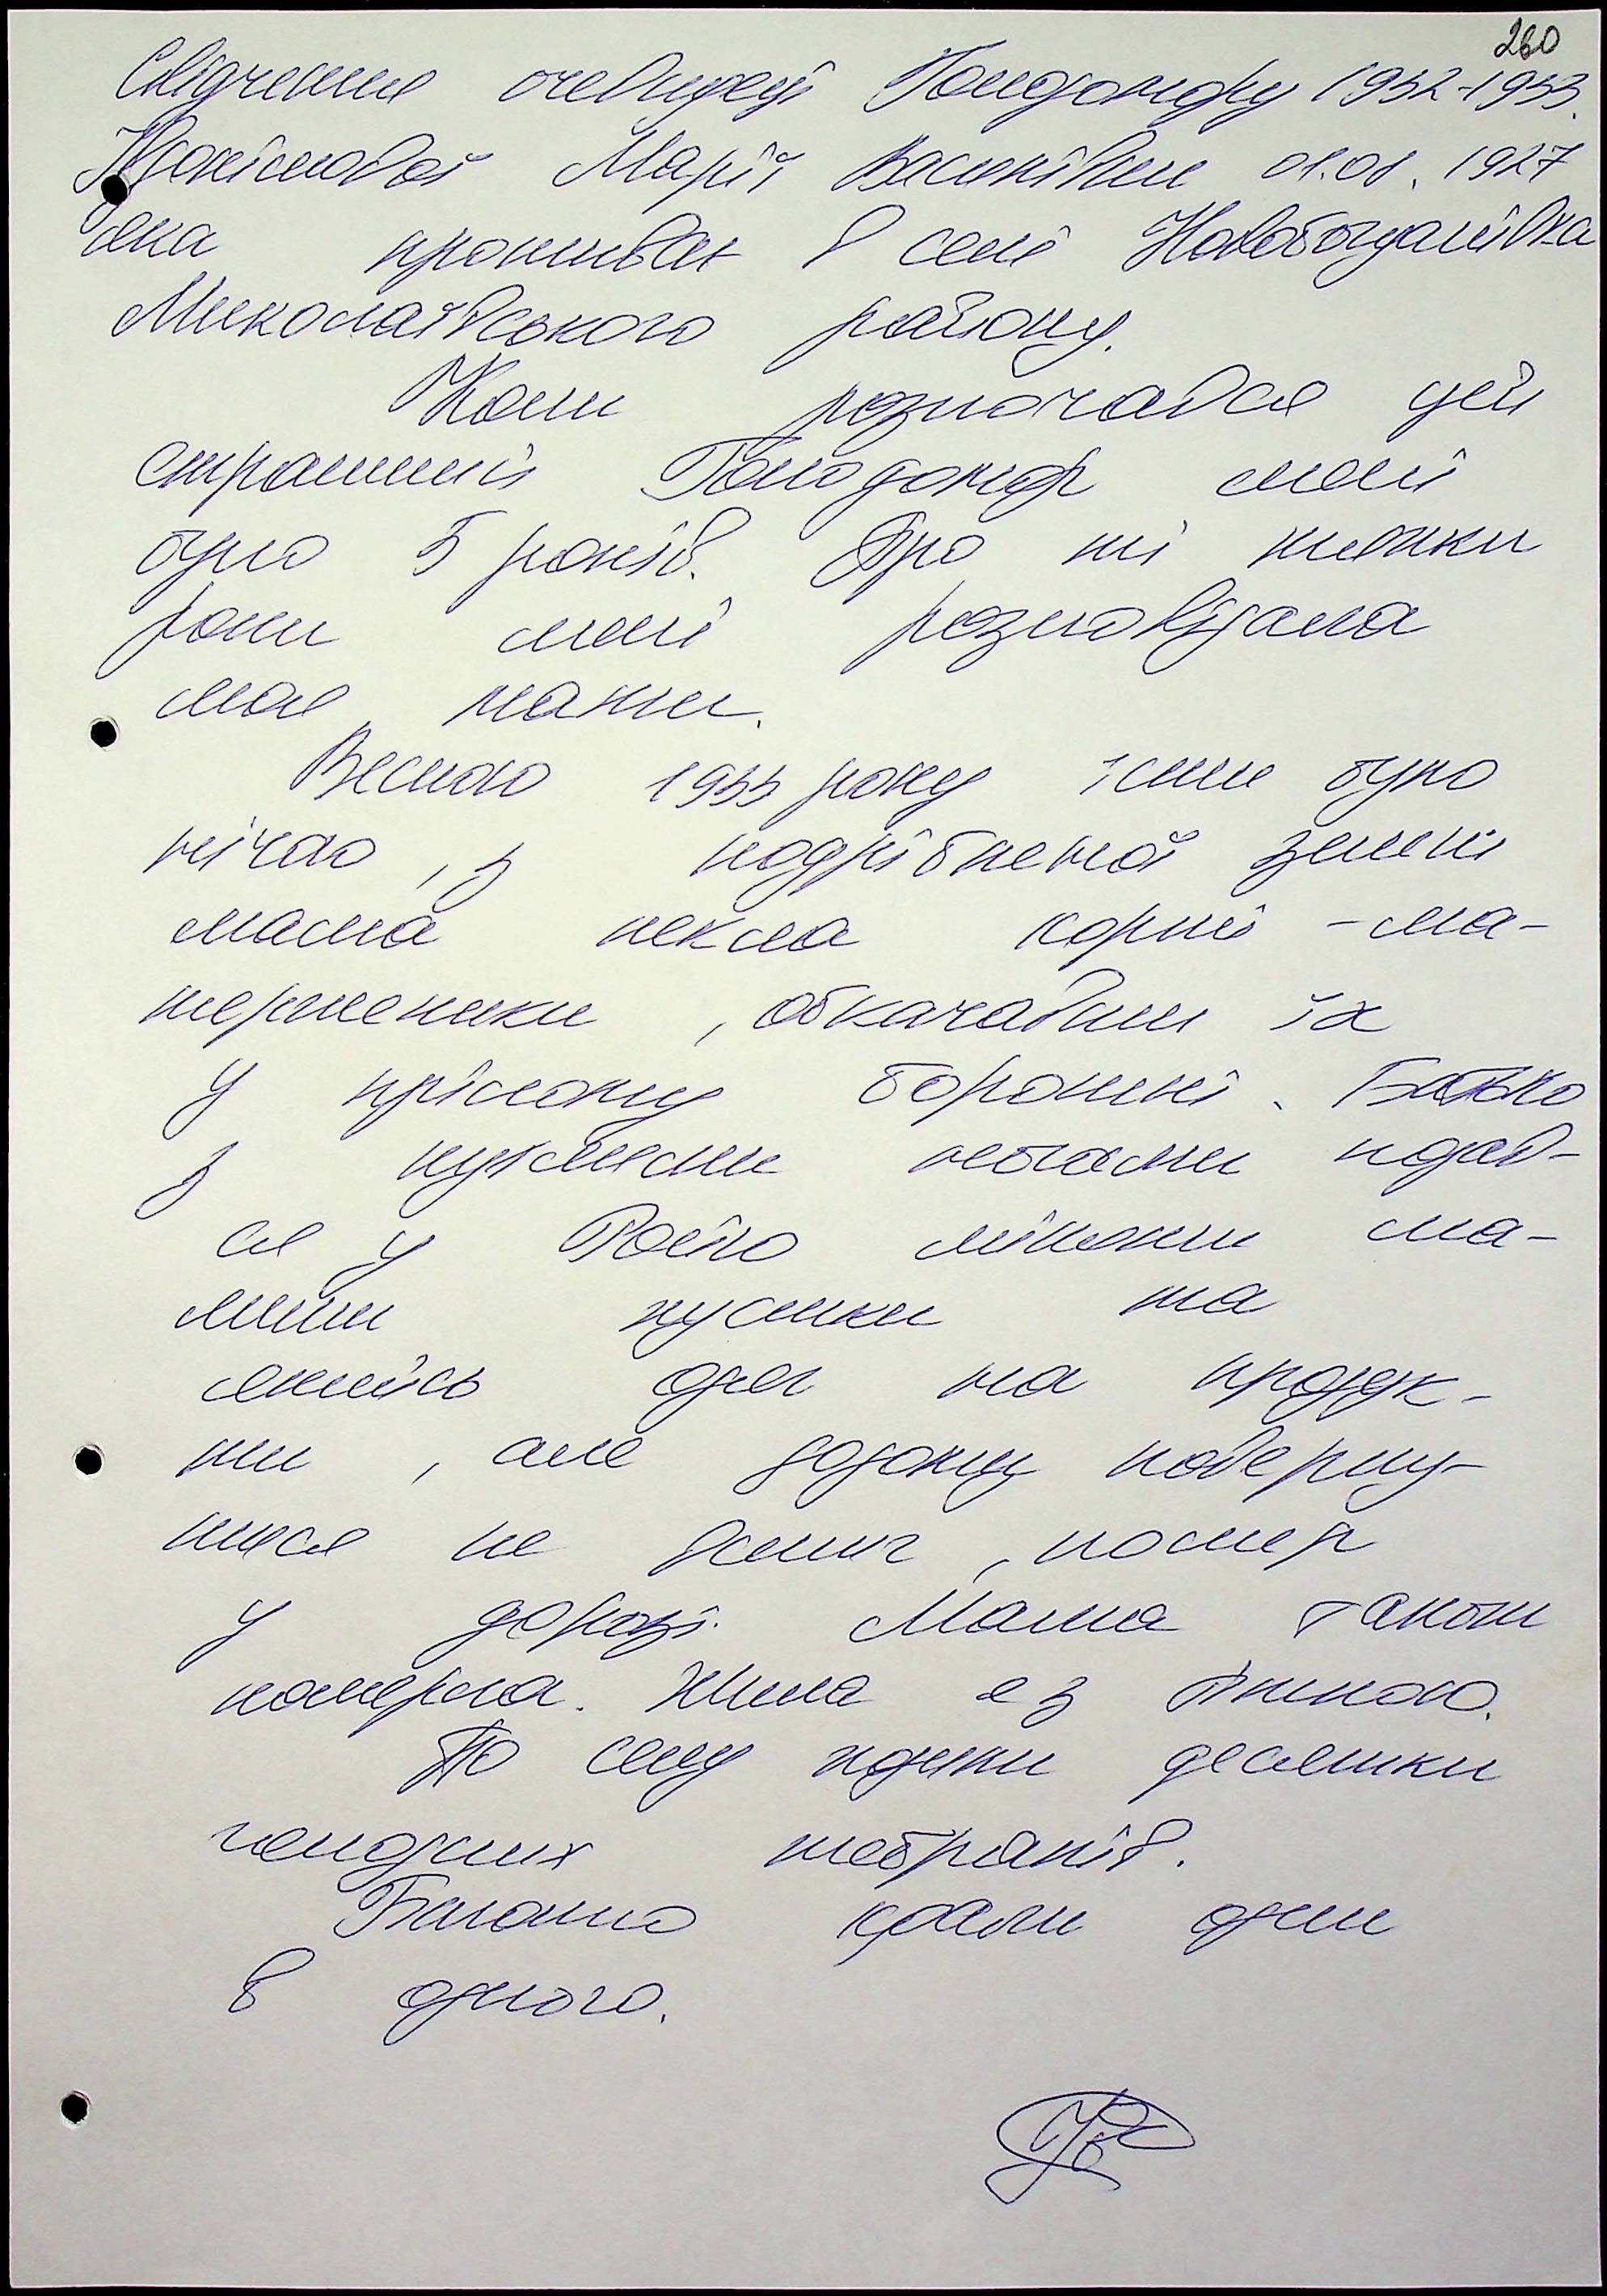 260
Свідчення очевидця Голодомору 1932-1933.
Марії Василівни 01.01.1927
яка проживає в селі Новобогданівка
Миколаївського району.
Коли розпочався цей
страшний Голодомор мені
було 5 років. Про ті тяжкі
роки мені розповідала
моя мати.
Весною 1933 року їсти було
нічого, з подрібненої землі
мама пекла коржі - ма-
терженики, обкачавши їх
у прісному борошні. Батько
з чужими людьми подав-
ся у Росію міняти ма-
мини хустки та
якийсь одяг на продук-
ти, але додому поверну-
тися не встиг, помер
у дорозі. Мама також
померла. Жила я з тіткою.
По селу ходили десятки
голодних жебраків.
Багато крали один
в одного.